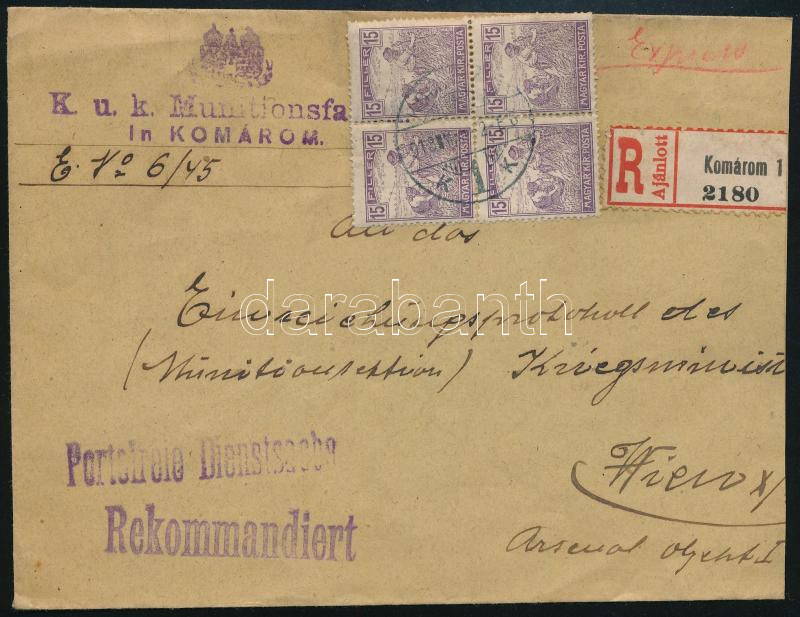 Express
K. u. k. Munitionsfa
in KOMÁROM.
E. No 6/45
15 FILLER MAGYAR KIR. POSTA
15 FILLER MAGYAR KIR. POSTA
15 FILLER MAGYAR KIR. POSTA
15 FILLER MAGYAR KIR. POSTA
R Ajánlott
Komárom 1
2180
An das
Einreichungsprotokoll des
(Munitionssektion) Kriegsminist
darabanth
Portofreie Dienstsache
Rekommandiert
Wien X/
Arsenal Objekt I